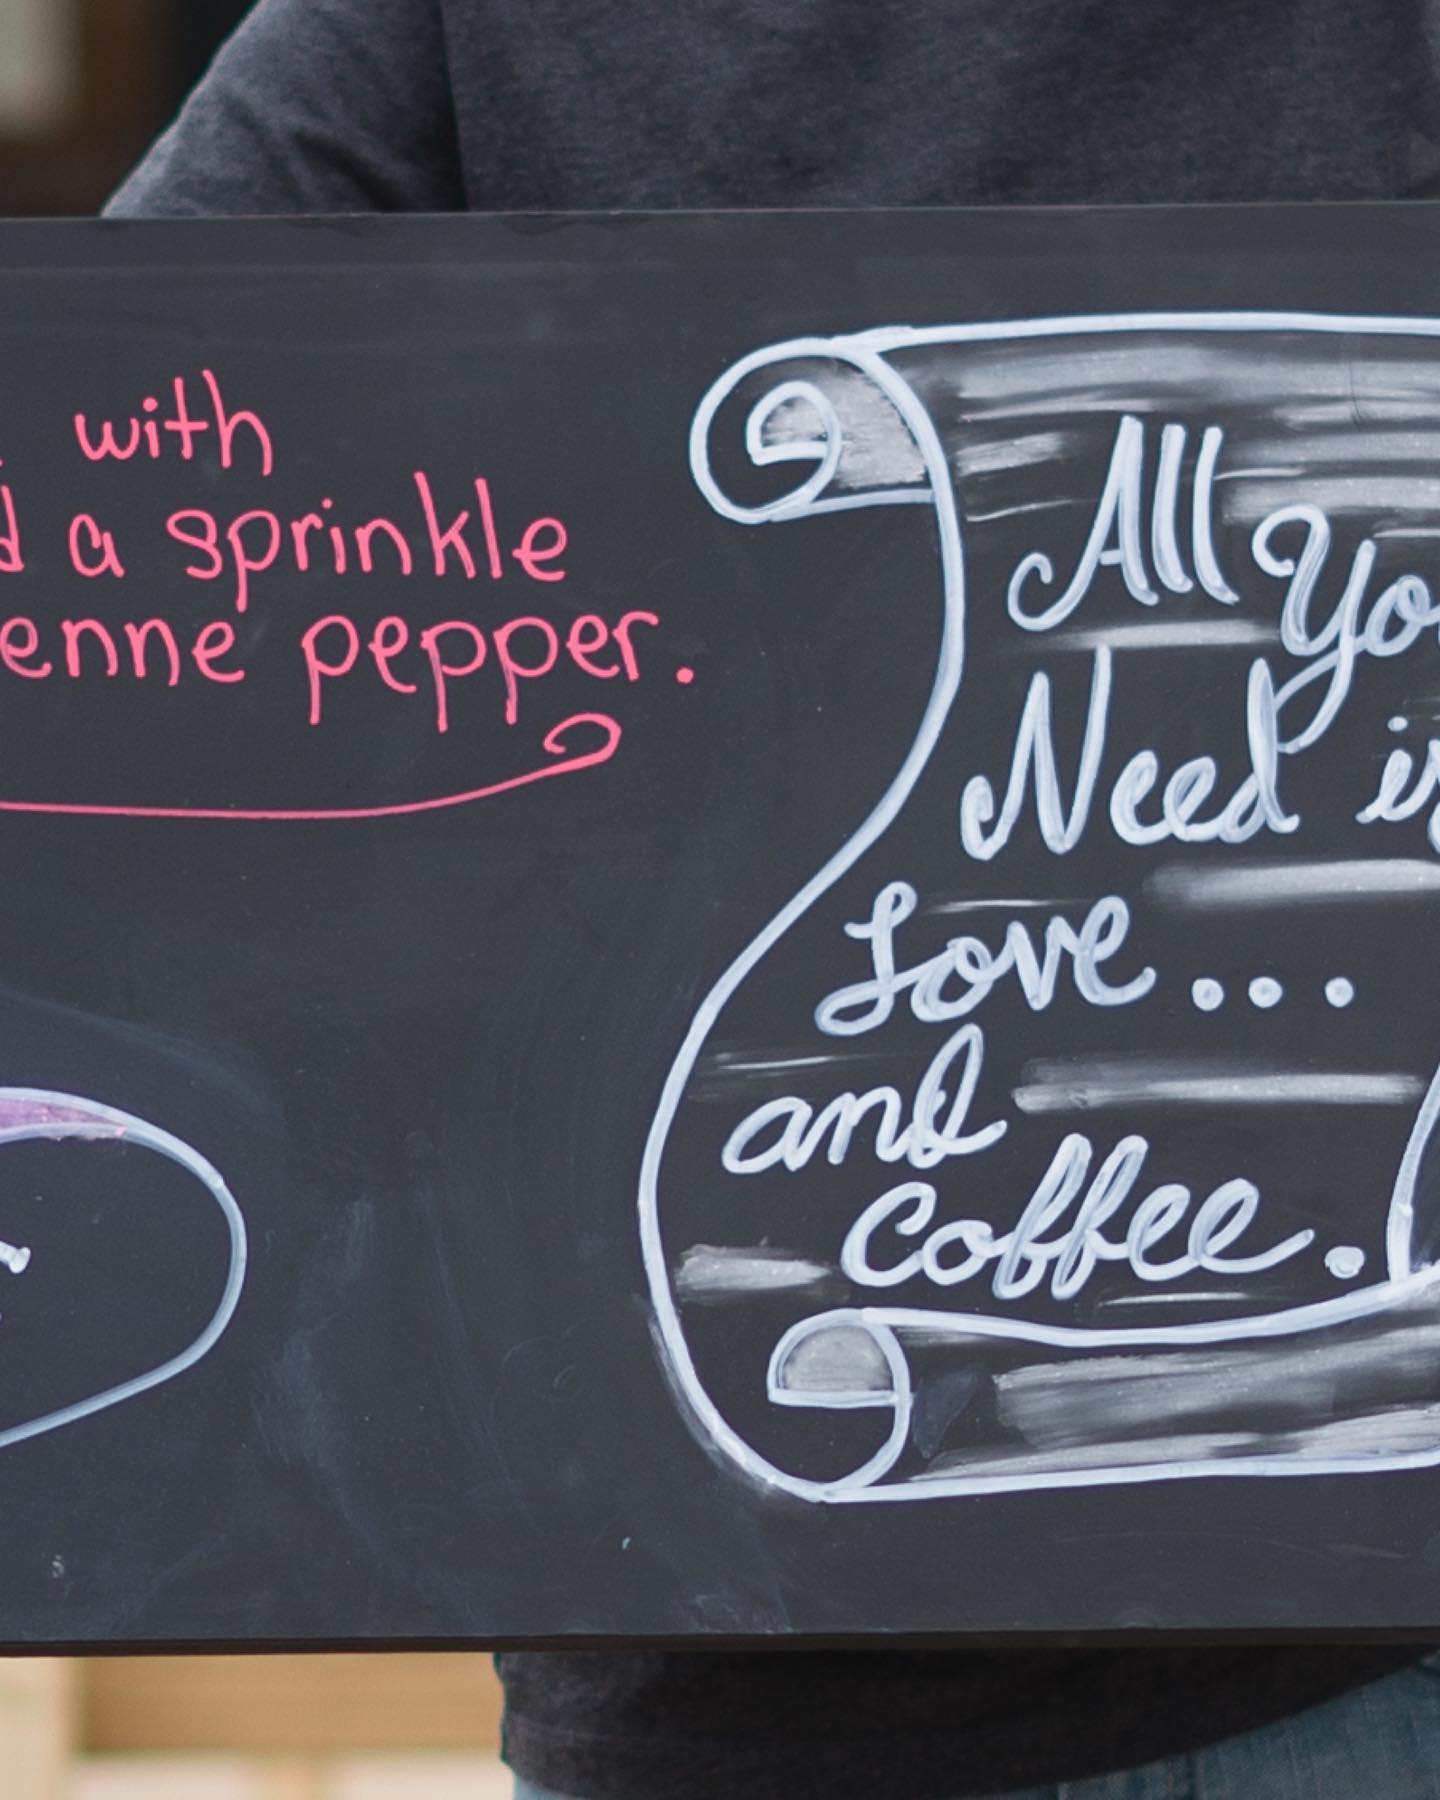 with
a sprinkle
enne pepper.
All You
Need is
Love...
and
Coffee.